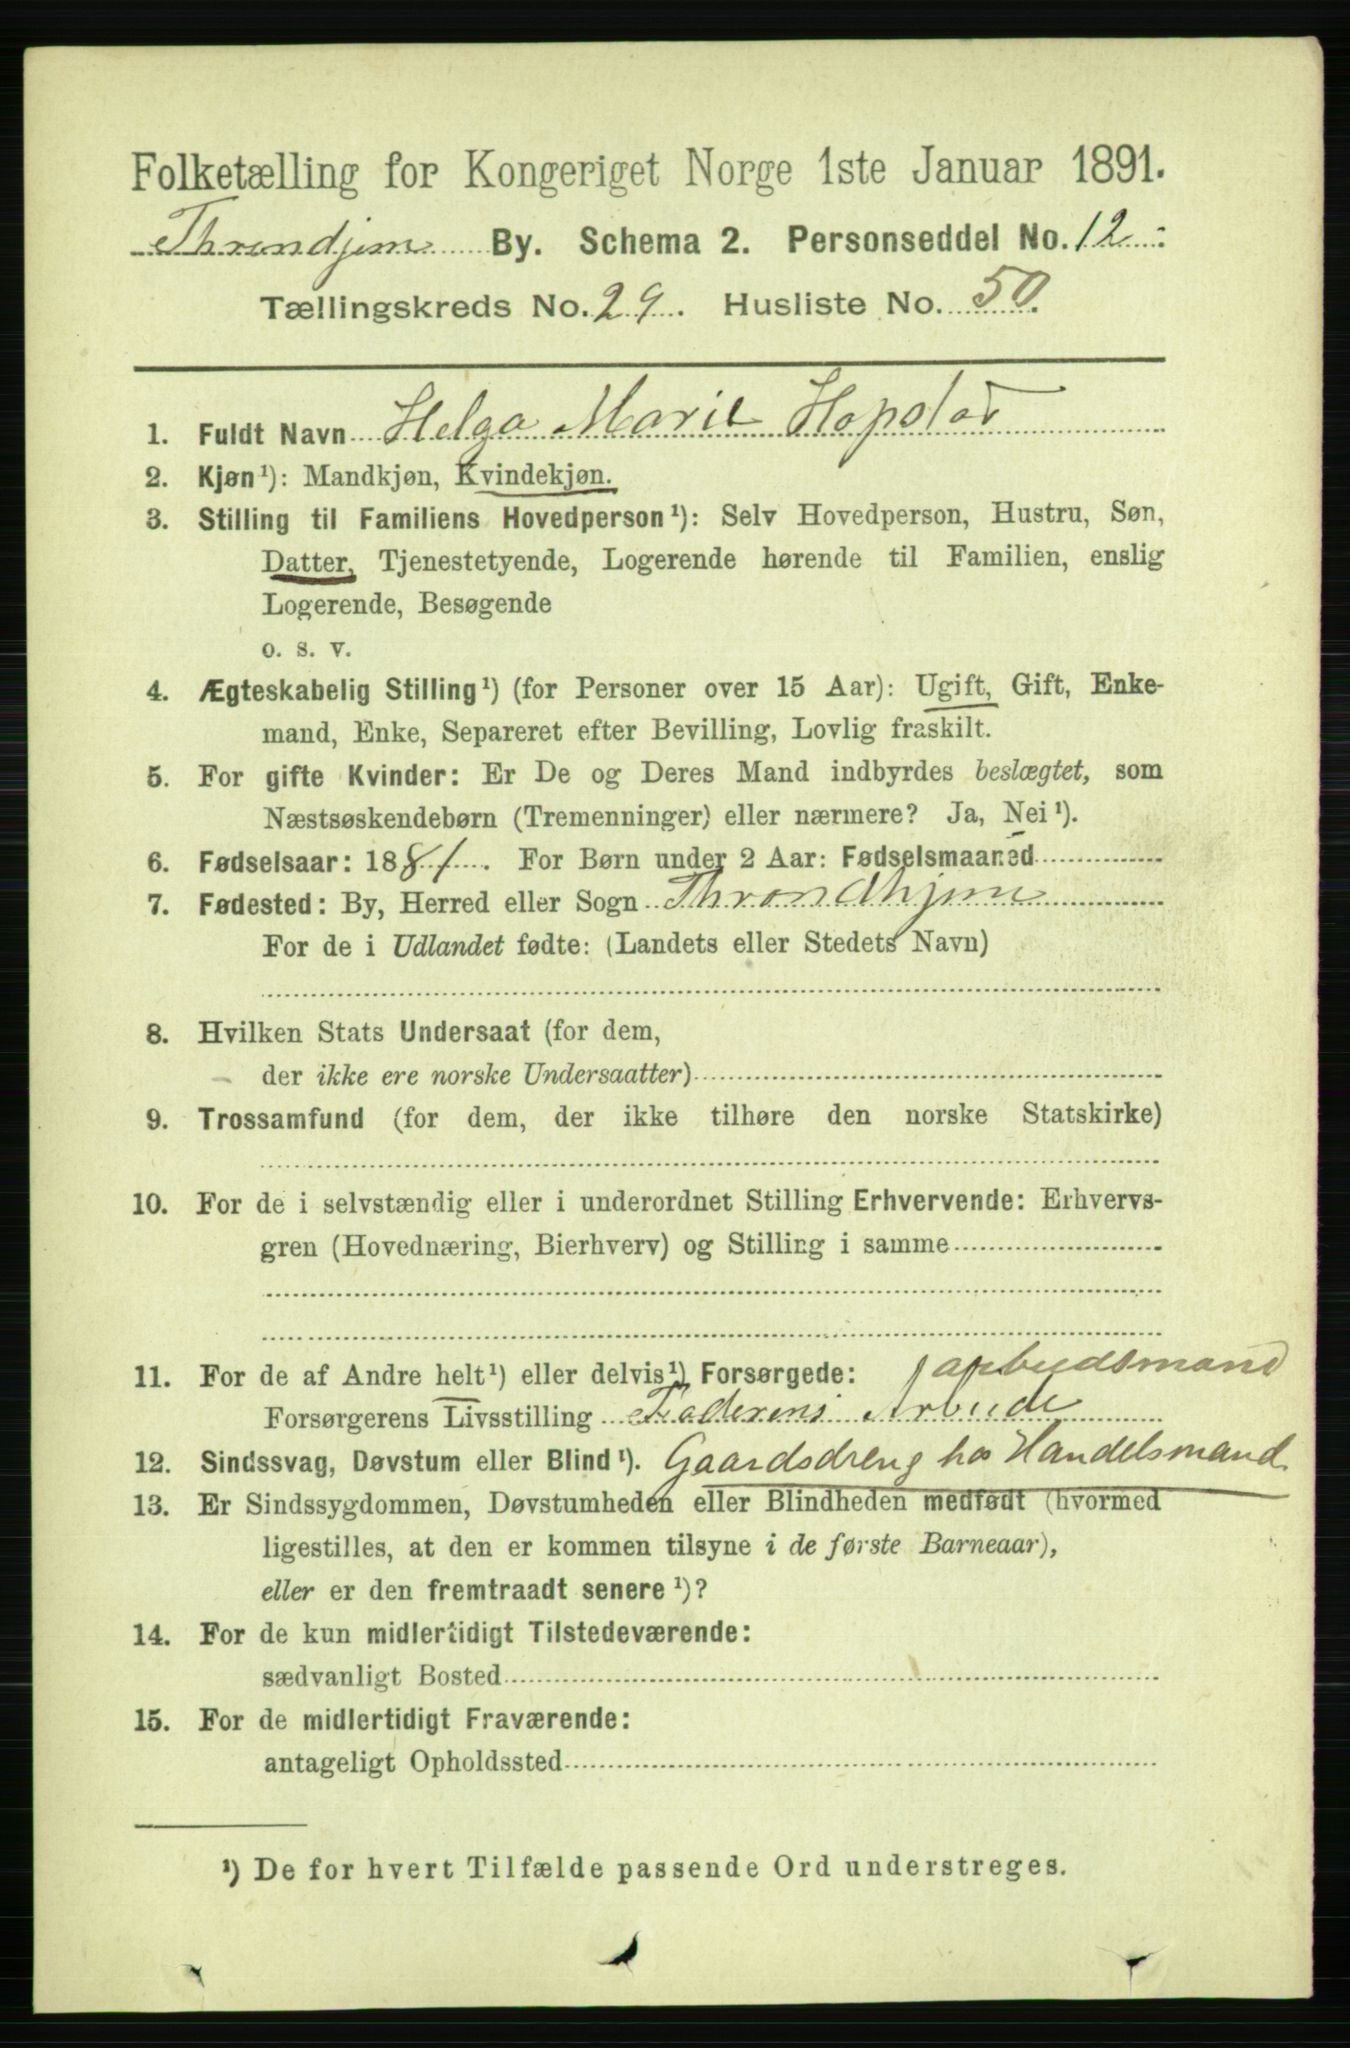 Folketælling for Kongeriget Norge 1ste Januar 1891.
Throndjem By. Schema 2. Personseddel No. 12
Tællingskreds No. 29. Husliste No. 50.
1. Fuldt Navn Helga Marie Hopstad
2. Kjøn¹): Mandkjøn, Kvindekjøn.
3. Stilling til Familiens Hovedperson¹): Selv Hovedperson, Hustru, Søn,
Datter, Tjenestetyende, Logerende hørende til Familien, enslig
Logerende, Besøgende
o. s. v.
4. Ægteskabelig Stilling¹) (for Personer over 15 Aar): Ugift, Gift, Enke-
mand, Enke, Separeret efter Bevilling, Lovlig fraskilt.
5. For gifte Kvinder: Er De og Deres Mand indbyrdes beslægtet, som
Næstsøskendebørn (Tremenninger) eller nærmere? Ja, Nei¹).
6. Fødselsaar: 1881. For Børn under 2 Aar: Fødselsmaaned
7. Fødested: By, Herred eller Sogn Throndhjem
For de i Udlandet fødte: (Landets eller Stedets Navn)
8. Hvilken Stats Undersaat (for dem,
der ikke ere norske Undersaatter)
9. Trossamfund (for dem, der ikke tilhøre den norske Statskirke)
10. For de i selvstændig eller i underordnet Stilling Erhvervende: Erhvervs-
gren (Hovednæring, Bierhverv) og Stilling i samme
11. For de af Andre helt¹) eller delvis¹) Forsørgede: arbeidsmand
Forsørgerens Livsstilling Faderens Arbeide
12. Sindssvag, Døvstum eller Blind¹). Gaardsdreng hos Handelsmand
13. Er Sindssygdommen, Døvstumheden eller Blindheden medfødt (hvormed
ligestilles, at den er kommen tilsyne i de første Barneaar),
eller er den fremtraadt senere¹)?
14. For de kun midlertidigt Tilstedeværende:
sædvanligt Bosted
15. For de midlertidigt Fraværende:
antageligt Opholdssted
¹) De for hvert Tilfælde passende Ord understreges.